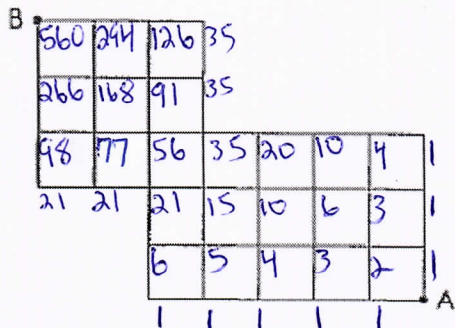 B
560 294 126 35
266 168 91 35
98 77 56 35 20 10 4 1
21 21 21 15 10 6 3 1
6 5 4 3 2 1
A
1 1 1 1 1